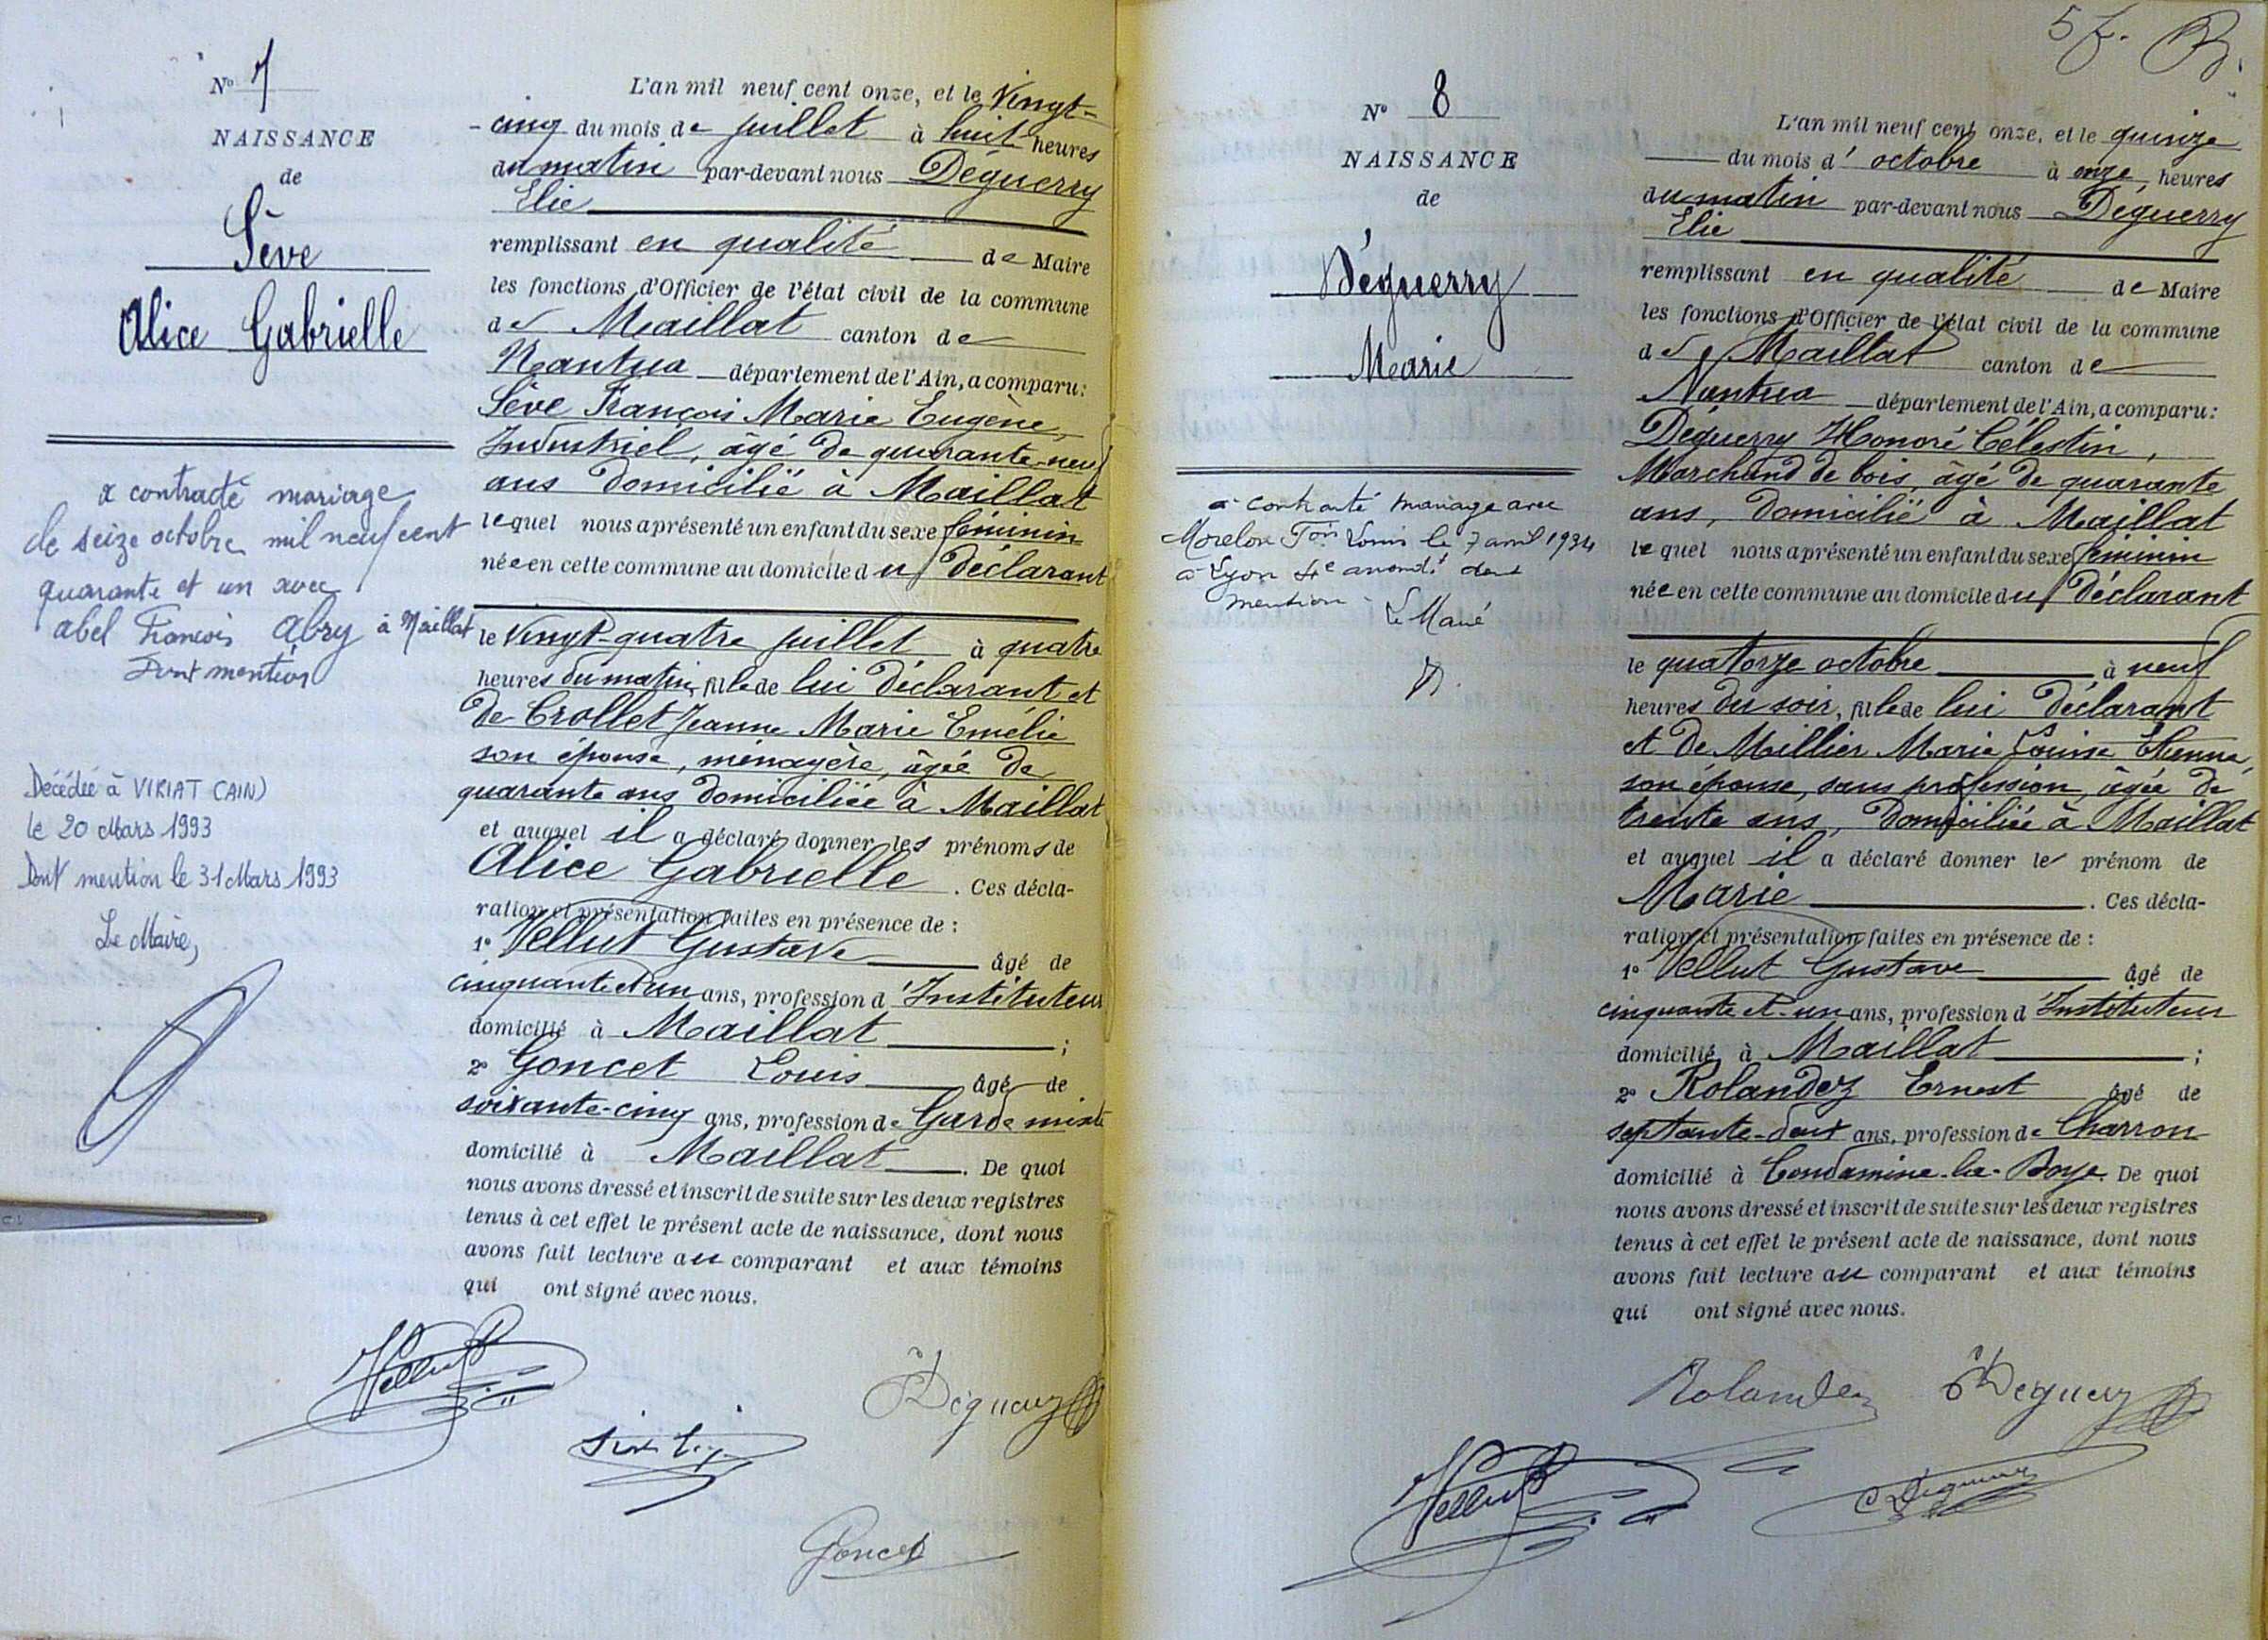 N° 7
NAISSANCE
de
Sève
Alice Gabrielle
a contracté mariage
le seize octobre mil neuf cent
quarante et un avec
Abel François Abry à Maillat
Dont mention
Décédée à VIRIAT (AIN)
le 20 Mars 1993
Dont mention le 31 Mars 1993
Le Maire,
L'an mil neuf cent onze, et le Vingt-
-cinq du mois de juillet à huit heures
du matin par-devant nous Déguerry
Elie
remplissant en qualité de Maire
les fonctions d'Officier de l'état civil de la commune
de Maillat canton de
Nantua département de l'Ain, a comparu:
Sève François Marie Eugène,
Industriel, âgé de quarante-neuf
ans domicilié à Maillat
lequel nous a présenté un enfant du sexe féminin
née en cette commune au domicile du déclarant
le Vingt-quatre juillet à quatre
heures du matin, fille de lui déclarant et
de Crollet Jeanne Marie Emélie
son épouse, ménagère, âgée de
quarante ans domiciliée à Maillat
et auquel il a déclaré donner les prénoms de
Alice Gabrielle. Ces décla-
ration et présentation faites en présence de :
1° Vellut Gustave âgé de
cinquante et un ans, profession d'Instituteur
domicilié à Maillat ;
2° Goncet Louis âgé de
soixante-cinq ans, profession de Garde mixte
domicilié à Maillat. De quoi
nous avons dressé et inscrit de suite sur les deux registres
tenus à cet effet le présent acte de naissance, dont nous
avons fait lecture au comparant et aux témoins
qui ont signé avec nous.
Vellut
Déguerry
Goncet
N° 8
NAISSANCE
de
Déguerry
Marie
a contracté mariage avec
Morelon Fois Louis le 7 avril 1934
à Lyon 4e arrondt dont
mention
Le Maire
L'an mil neuf cent onze, et le quinze
du mois d'octobre à onze heures
du matin par-devant nous Déguerry
Elie
remplissant en qualité de Maire
les fonctions d'Officier de l'état civil de la commune
de Maillat canton de
Nantua département de l'Ain, a comparu:
Déguerry Honoré Célestin,
Marchand de bois, âgé de quarante
ans, domicilié à Maillat
lequel nous a présenté un enfant du sexe féminin
née en cette commune au domicile du déclarant
le quatorze octobre à neuf
heures du soir, fille de lui déclarant
et de Millier Marie Louise Etienne,
son épouse, sans profession, âgée de
trente ans, domiciliée à Maillat
et auquel il a déclaré donner le prénom de
Marie. Ces décla-
ration et présentation faites en présence de :
1° Vellut Gustave âgé de
cinquante et-un ans, profession d'Instituteur
domicilié à Maillat ;
2° Rolandez Ernest âgé de
septante-deux ans, profession de Charron
domicilié à Condamine-la-Doye. De quoi
nous avons dressé et inscrit de suite sur les deux registres
tenus à cet effet le présent acte de naissance, dont nous
avons fait lecture au comparant et aux témoins
qui ont signé avec nous.
Rolandez Déguerry
Vellut C Déguerry